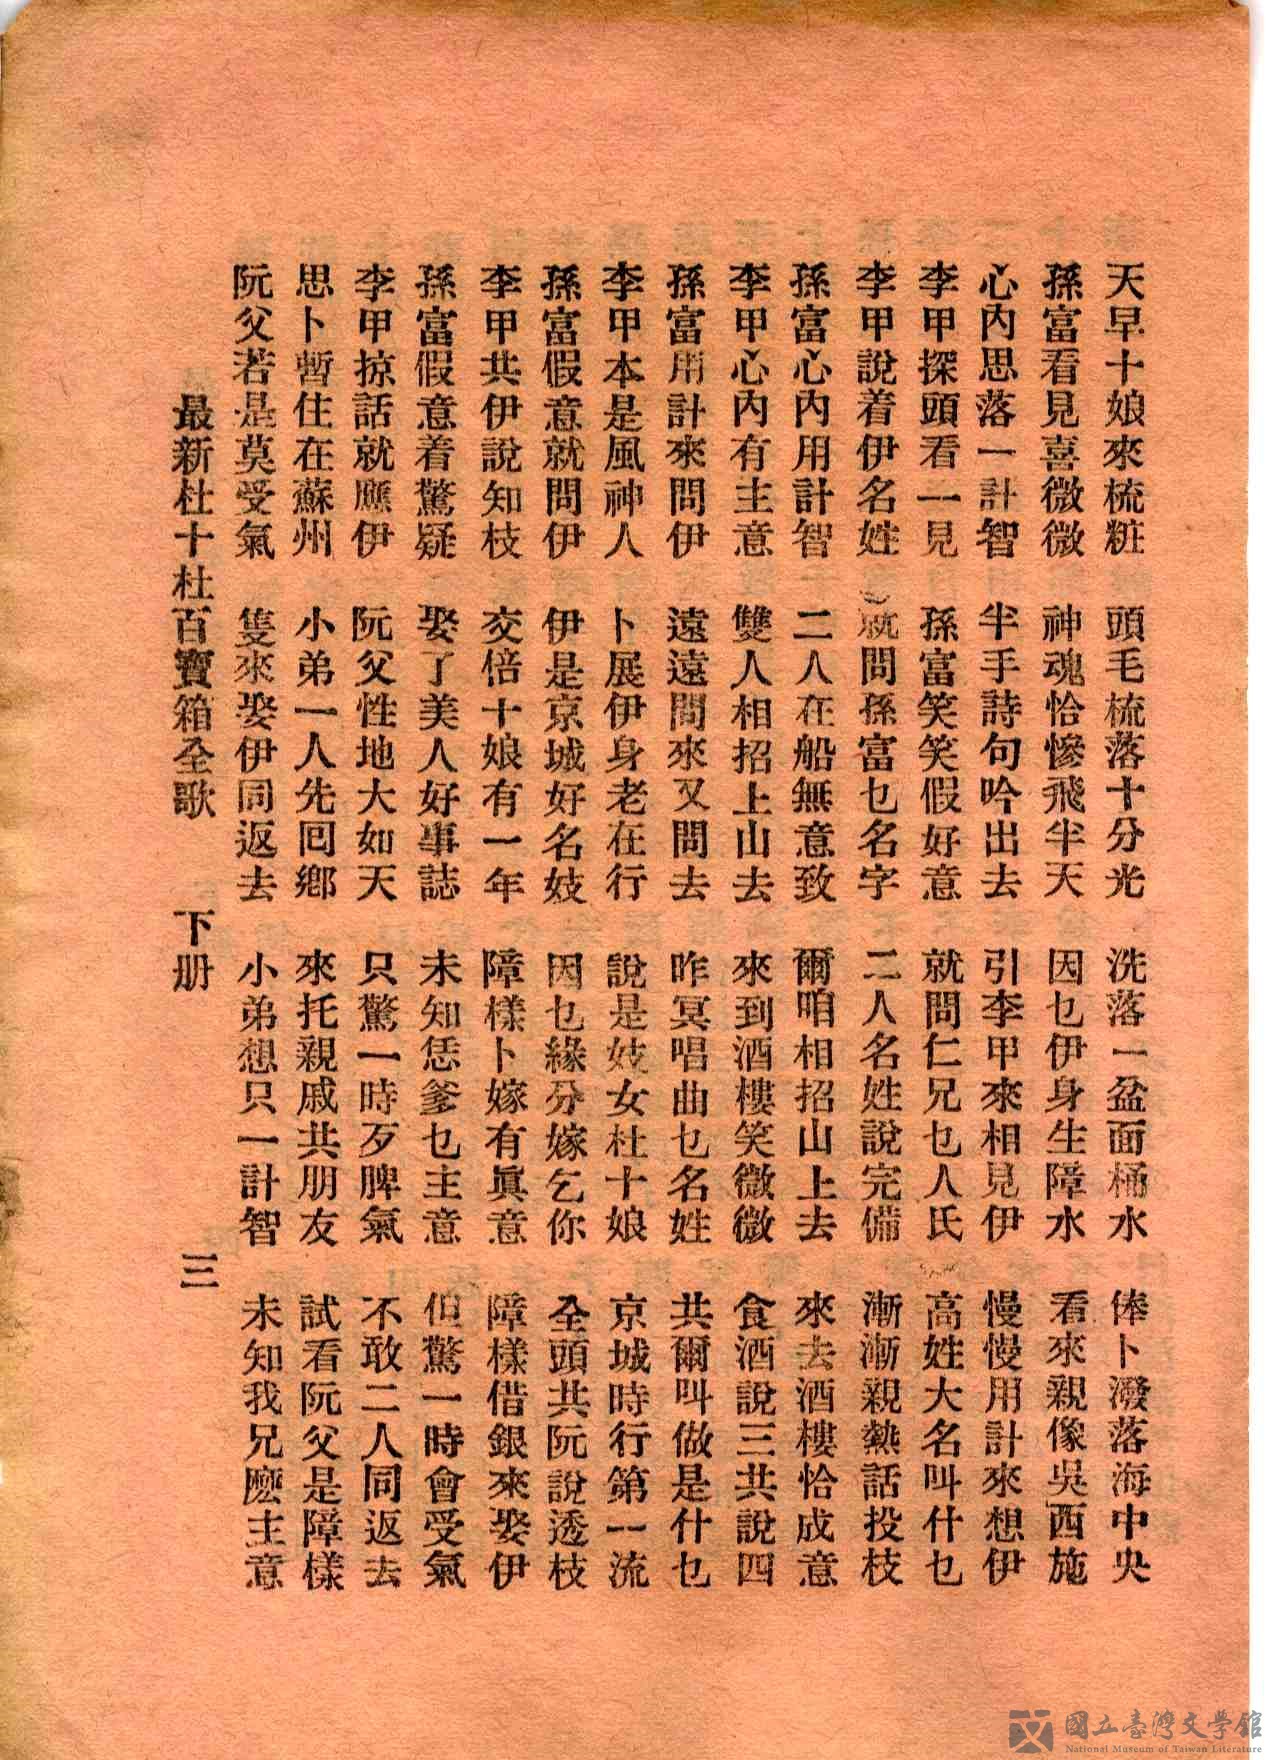 天早十娘來梳粧 頭毛梳落十分光 洗落一盆面桶水 俸卜潑落海中央
孫富看見喜微微 神魂恰慘飛半天 因乜伊身生障水 看來親像吳西施
心內思落一計智 半手詩句吟出去 引李甲來相見伊 慢慢用計來想伊
李甲探頭看一見 孫富笑笑假好意 就問仁兄乜人氏 高姓大名叫什乜
李甲說着伊名姓 就問孫富乜名字 二人名姓說完備 漸漸親熱話投枝
孫富心內用計智 二人在船無意致 爾咱相招山上去 來去酒樓恰成意
李甲心內有主意 雙人相招上山去 來到酒樓笑微微 食酒說三共說四
孫富用計來問伊 遠遠間來又問去 昨冥唱曲乜名姓 共爾叫做是什乜
李甲本是風神人 卜展伊身老在行 說是妓女杜十娘 京城時行第一流
孫富假意就問伊 伊是京城好名妓 因乜緣分嫁乞你 全頭共阮說透枝
李甲共伊說知枝 交倍十娘有一年 障樣卜嫁有眞意 障樣借銀來娶伊
孫富假意着驚疑 娶了美人好事誌 未知恁爹乜主意 但驚一時會受氣
李甲掠話就應伊 阮父性地大如天 只驚一時歹脾氣 不敢二人同返去
思卜暫住在蘇州 小弟一人先囘鄉 來托親戚共朋友 試看阮父是障樣
阮父若是莫受氣 隻來娶伊同返去 小弟想只一計智 未知我兄麽主意
最新杜十杜百寶箱全歌 下册 三
國立臺灣文學館
National Museum of Taiwan Literature